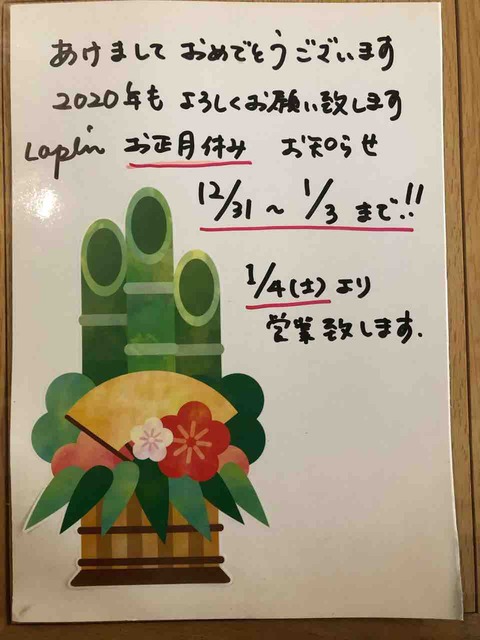 あけまして おめでとうございます
2020年も よろしくお願い致します
Lapin お正月休み お知らせ
12/31 ~ 1/3 まで!!
1/4(土)より
営業致します.